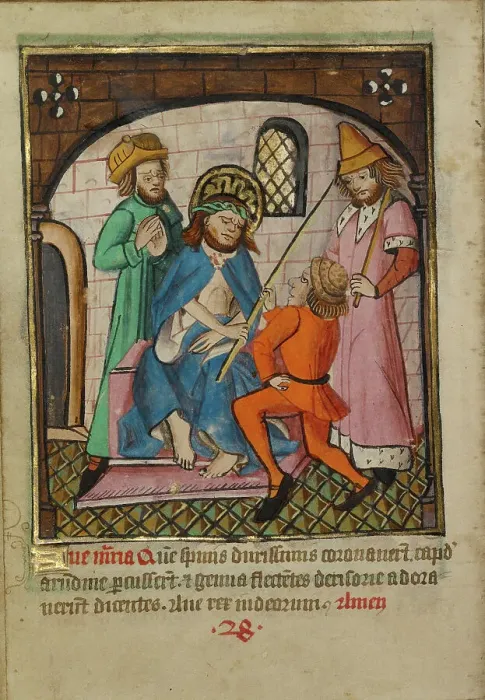 Aue m̄ria Quē spinis durissimis coronauert̄. capđ
arūdine ꝑcussert̄. ⁊ genua flectētes derisorie adora
uerūt dicentes. Aue rex iudeorum. Amen
·28·